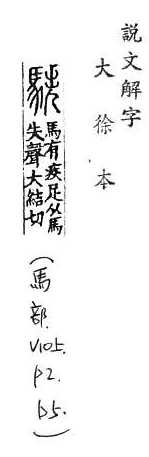 説文解字
大徐本
馬有疾足从馬
失聲大結切
(馬部 V105. P2. b5.)